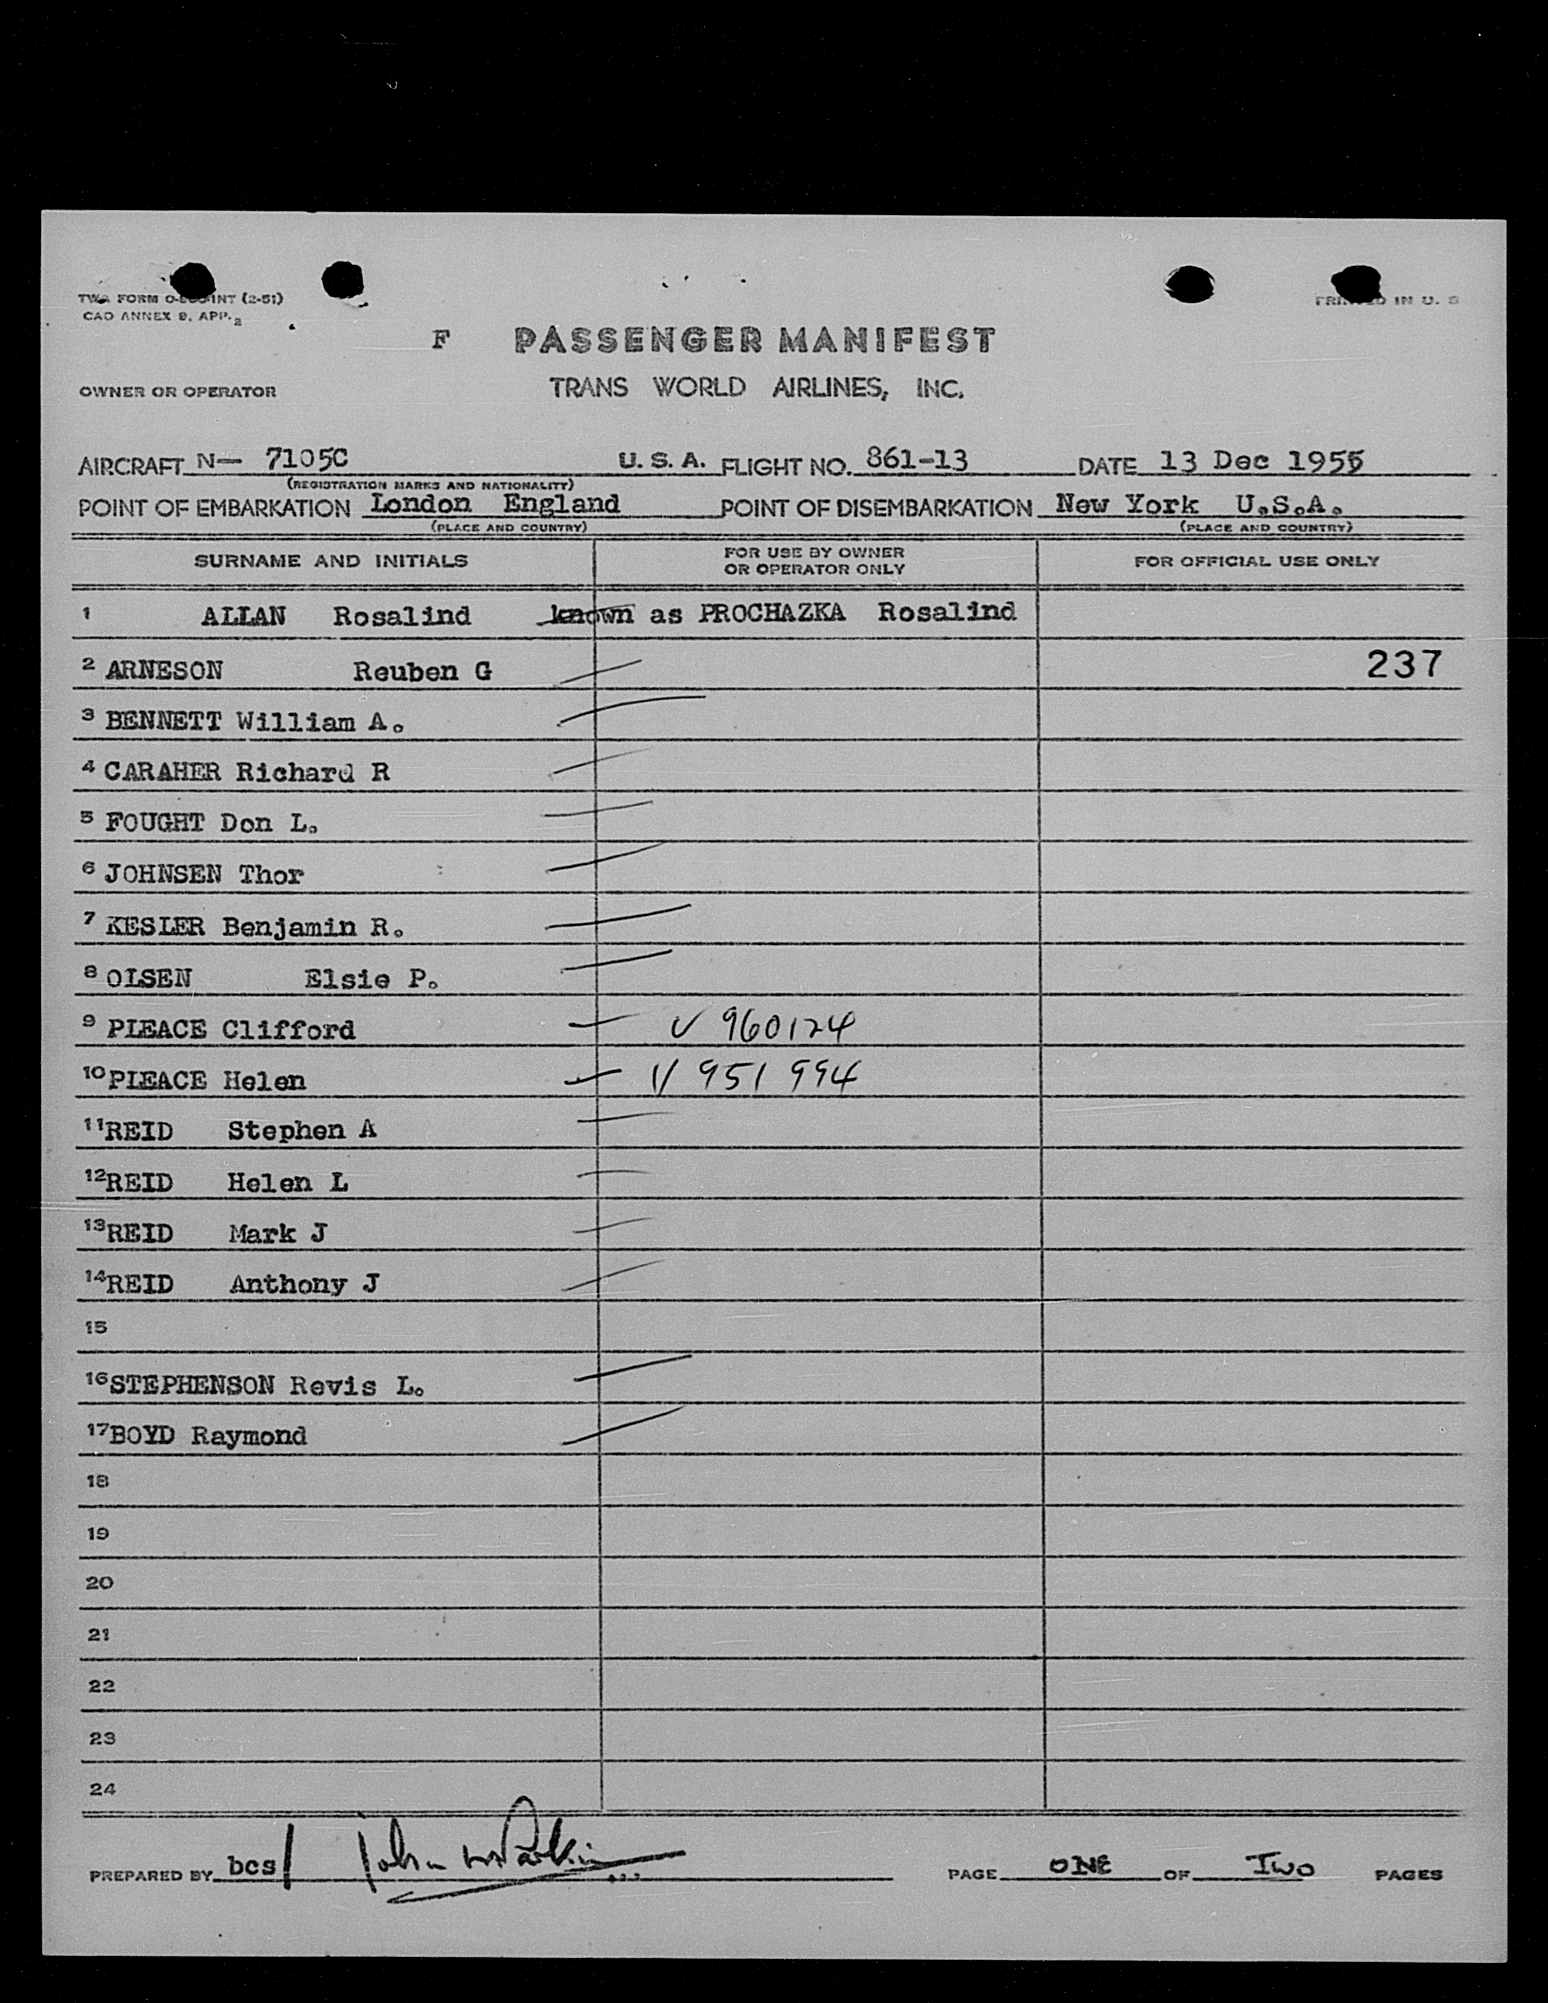 TWA FORM (2-51)
CAO ANNEX 9, APP. 2
PRINTED IN U. S
F PASSENGER MANIFEST
OWNER OR OPERATOR TRANS WORLD AIRLINES, INC.
AIRCRAFT N— 7105C U. S. A. FLIGHT NO. 861-13 DATE 13 Dec 1955
(REGISTRATION MARKS AND NATIONALITY)
POINT OF EMBARKATION London England POINT OF DISEMBARKATION New York U.S.A.
(PLACE AND COUNTRY) (PLACE AND COUNTRY)
SURNAME AND INITIALS FOR USE BY OWNER OR OPERATOR ONLY FOR OFFICIAL USE ONLY
1 ALLAN Rosalind known as PROCHAZKA Rosalind
2 ARNESON Reuben G 237
3 BENNETT William A.
4 CARAHER Richard R
5 FOUGHT Don L.
6 JOHNSEN Thor
7 KESLER Benjamin R.
8 OLSEN Elsie P.
9 PLEACE Clifford V 960124
10 PLEACE Helen V 951994
11 REID Stephen A
12 REID Helen L
13 REID Mark J
14 REID Anthony J
15
16 STEPHENSON Revis L.
17 BOYD Raymond
18
19
20
21
22
23
24
PREPARED BY bcs John PAGE ONE OF TWO PAGES